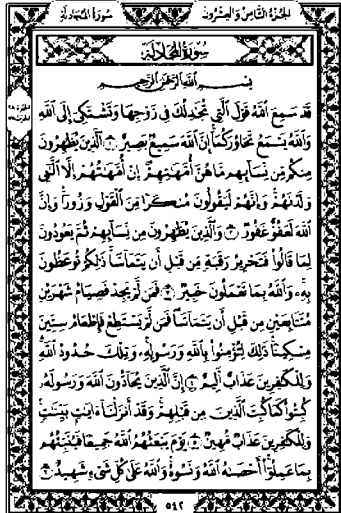 سُورَةُ المُجَادلَة الجُزْءُ الثَّامِنُ وَالعِشْرُونَ
سُورَةُ المُجَادلَة
بِسْمِ اللَّهِ الرَّحْمَٰنِ الرَّحِيمِ
قَدْ سَمِعَ اللَّهُ قَوْلَ الَّتِي تُجَٰدِلُكَ فِي زَوْجِهَا وَتَشْتَكِي إِلَى اللَّهِ
وَاللَّهُ يَسْمَعُ تَحَاوُرَكُمَا إِنَّ اللَّهَ سَمِيعٌ بَصِيرٌ ١ الَّذِينَ يُظَٰهِرُونَ
مِنكُم مِّن نِّسَآئِهِم مَّا هُنَّ أُمَّهَٰتِهِمْ إِنْ أُمَّهَٰتُهُمْ إِلَّا الَّٰٓـِٔي
وَلَدْنَهُمْ وَإِنَّهُمْ لَيَقُولُونَ مُنكَرًا مِّنَ الْقَوْلِ وَزُورًا وَإِنَّ
اللَّهَ لَعَفُوٌّ غَفُورٌ ٢ وَالَّذِينَ يُظَٰهِرُونَ مِن نِّسَآئِهِمْ ثُمَّ يَعُودُونَ
لِمَا قَالُوا فَتَحْرِيرُ رَقَبَةٍ مِّن قَبْلِ أَن يَتَمَآسَّا ذَٰلِكُمْ تُوعَظُونَ
بِهِ وَاللَّهُ بِمَا تَعْمَلُونَ خَبِيرٌ ٣ فَمَن لَّمْ يَجِدْ فَصِيَامُ شَهْرَيْنِ
مُتَتَابِعَيْنِ مِن قَبْلِ أَن يَتَمَآسَّا فَمَن لَّمْ يَسْتَطِعْ فَإِطْعَامُ سِتِّينَ
مِسْكِينًا ذَٰلِكَ لِتُؤْمِنُوا بِاللَّهِ وَرَسُولِهِ وَتِلْكَ حُدُودُ اللَّهِ
وَلِلْكَٰفِرِينَ عَذَابٌ أَلِيمٌ ٤ إِنَّ الَّذِينَ يُحَآدُّونَ اللَّهَ وَرَسُولَهُ
كُبِتُوا كَمَا كُبِتَ الَّذِينَ مِن قَبْلِهِمْ وَقَدْ أَنزَلْنَآ ءَايَٰتٍ بَيِّنَٰتٍ
وَلِلْكَٰفِرِينَ عَذَابٌ مُّهِينٌ ٥ يَوْمَ يَبْعَثُهُمُ اللَّهُ جَمِيعًا فَيُنَبِّئُهُم
بِمَا عَمِلُوٓا أَحْصَىٰهُ اللَّهُ وَنَسُوهُ وَاللَّهُ عَلَىٰ كُلِّ شَيْءٍ شَهِيدٌ ٦
٥٤٢